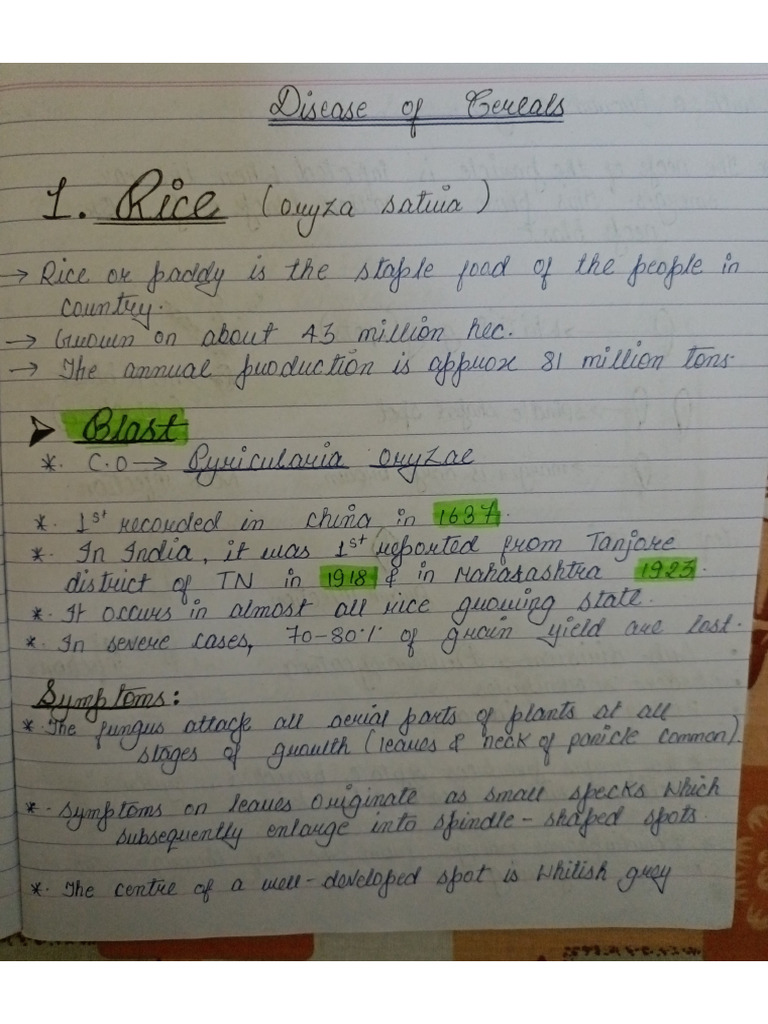 Disease of Cereals
1. Rice (oryza sativa)
→ Rice or paddy is the staple food of the people in
country.
→ Grown on about 43 million hec.
→ The annual production is approx 81 million tons.
➤ Blast
*. C.O → Pyricularia oryzae
*. 1st recorded in China in 1637.
*. In India, it was 1st reported from Tanjore
district of TN in 1918 & in Maharashtra 1923.
*. It occurs in almost all rice growing state.
*. In severe cases, 70-80% of grain yield are lost.
Symptoms:
*. The fungus attack all aerial parts of plants at all
stages of growth (leaves & neck of panicle common).
*. Symptoms on leaves originate as small specks which
subsequently enlarge into spindle-shaped spots.
*. The centre of a well-developed spot is whitish grey